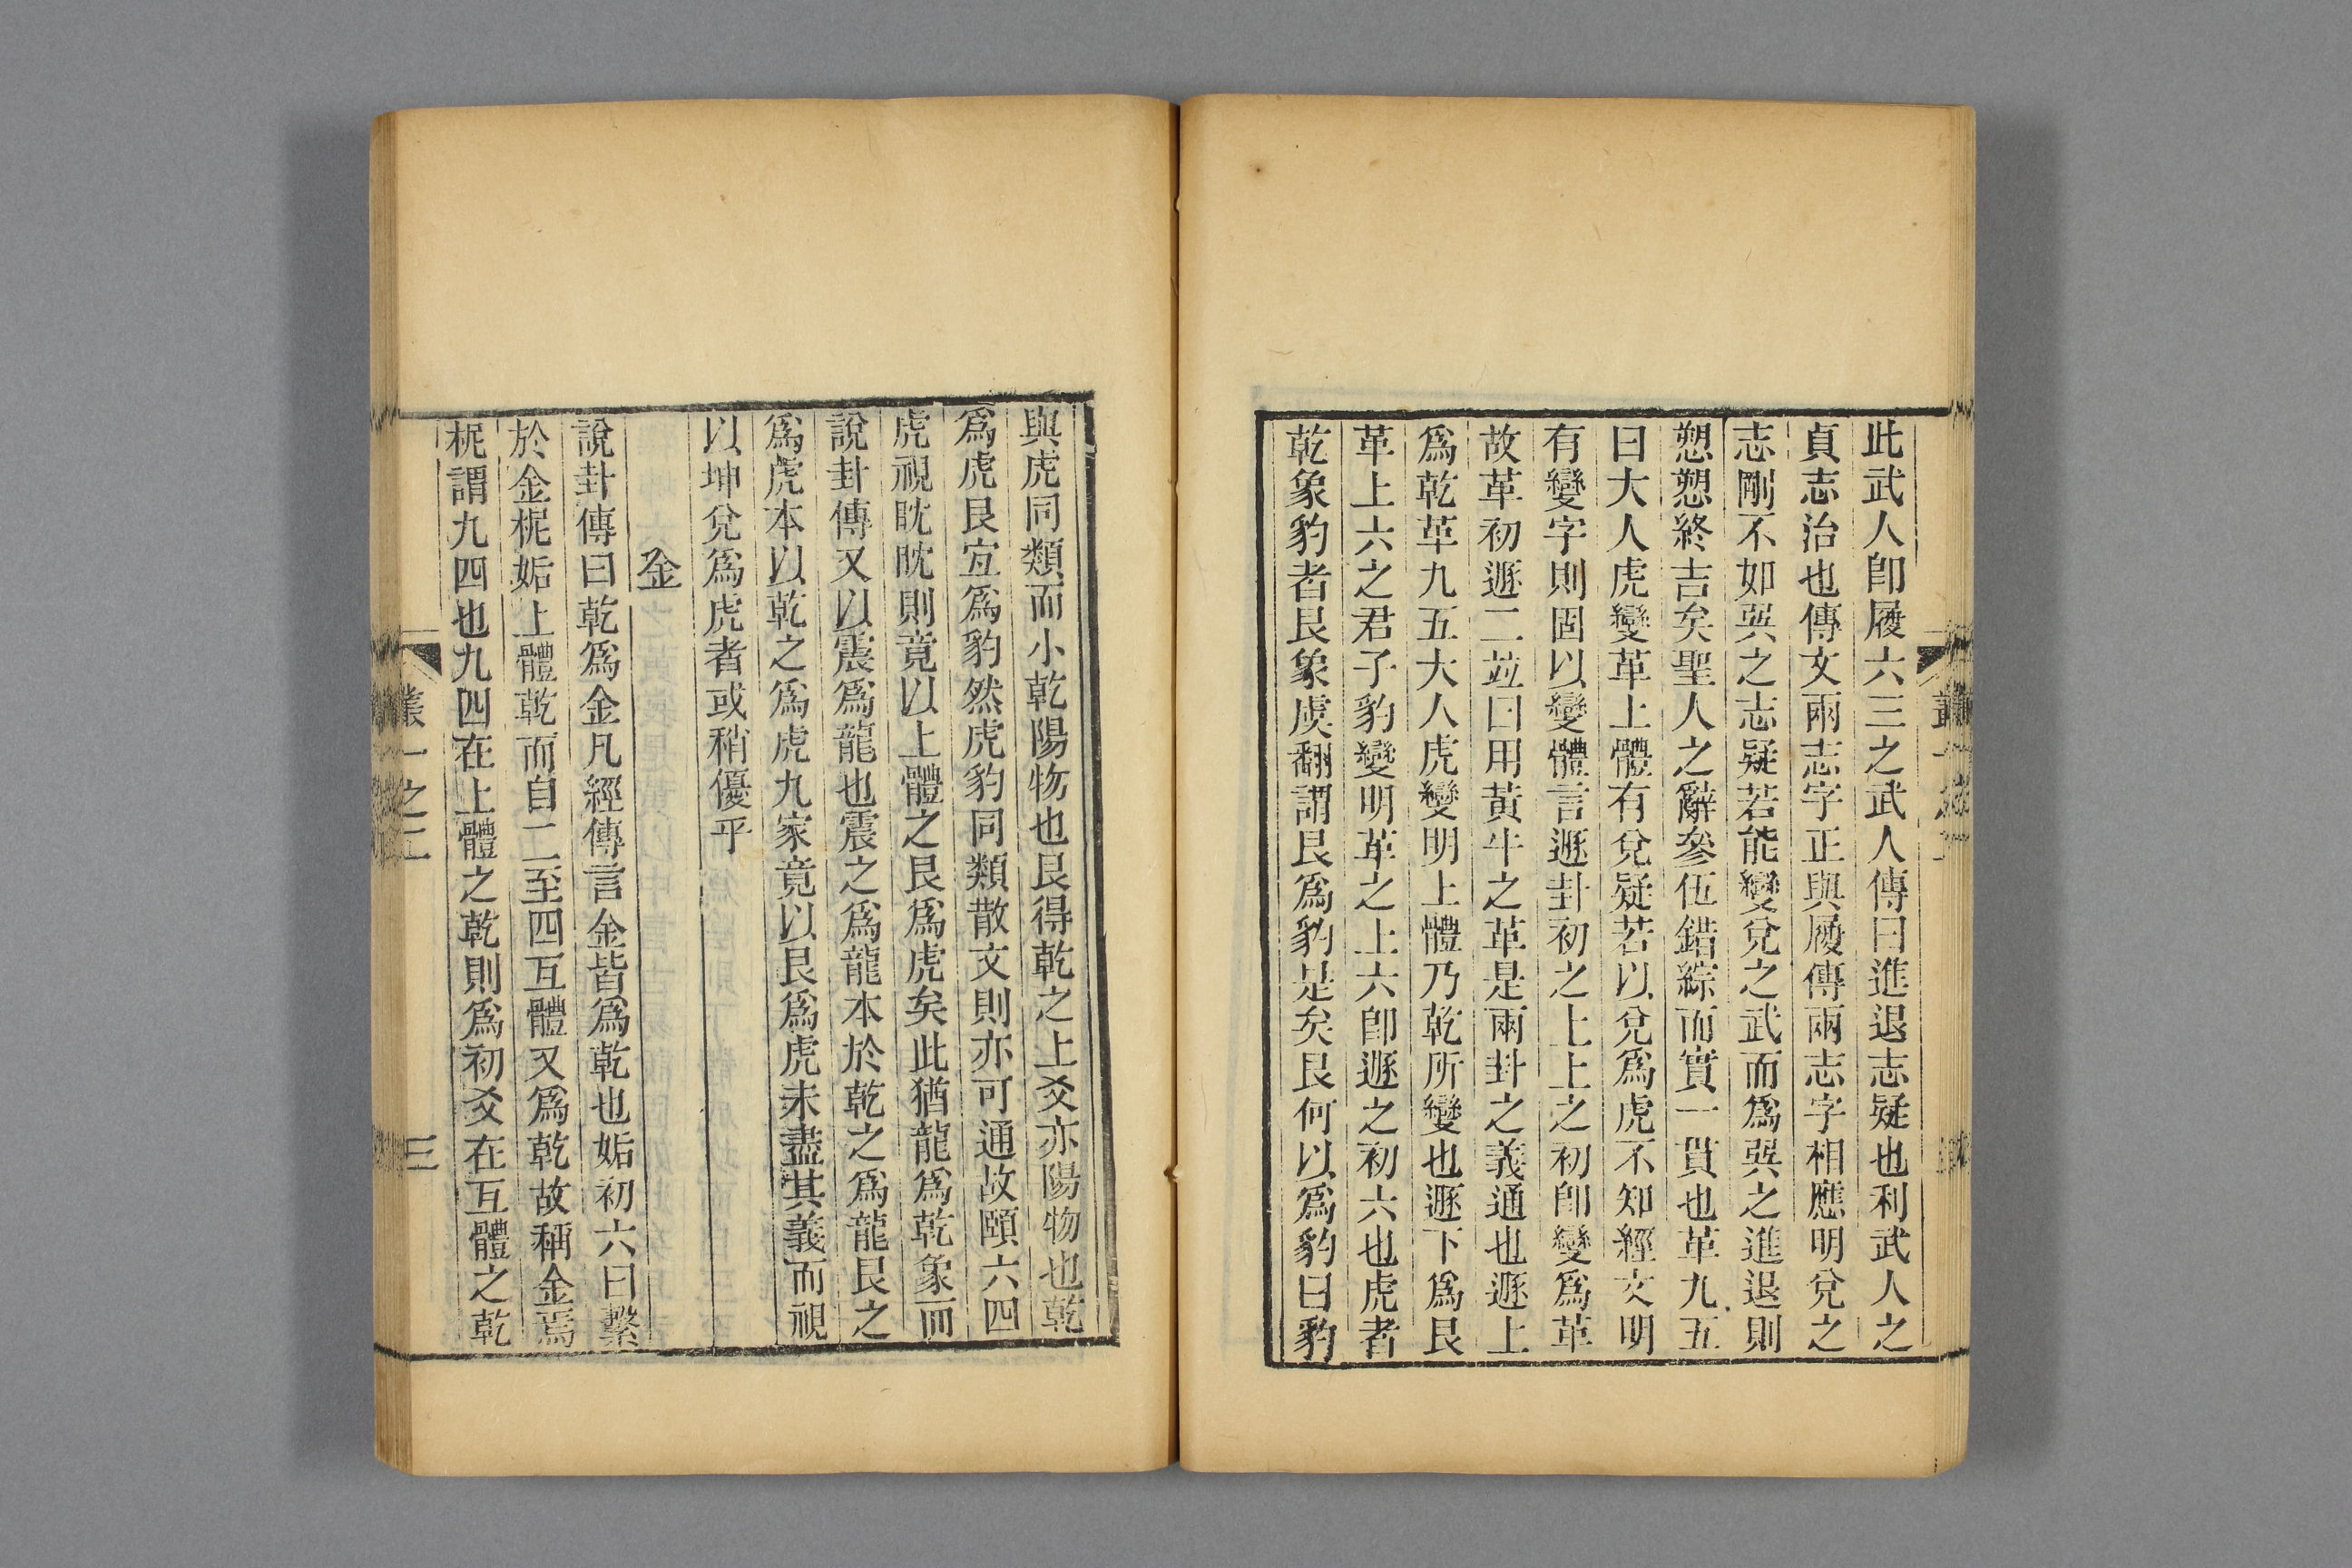 此武人卽履六三之武人傳曰進退志疑也利武人之
貞志治也傳文兩志字正與履傳兩志字相應明兌之
志剛不如巽之志疑若能變兌之武而爲巽之進退則
愬愬終吉矣聖人之辭參伍錯綜而實一貫也革九五
曰大人虎變革上體有兌疑若以兌爲虎不知經文明
有變字則固以變體言遯卦初之上上之初卽變爲革
故革初遯二竝曰用黃牛之革是兩卦之義通也遯上
爲乾革九五大人虎變明上體乃乾所變也遯下爲艮
革上六之君子豹變明革之上六卽遯之初六也虎者
乾象豹者艮象虞翻謂艮爲豹是矣艮何以爲豹曰豹
與虎同類而小乾陽物也艮得乾之上爻亦陽物也乾
爲虎艮宐爲豹然虎豹同類散文則亦可通故頤六四
虎視眈眈則竟以上體之艮爲虎矣此猶龍爲乾象而
說卦傳又以震爲龍也震之爲龍本於乾之爲龍艮之
爲虎本以乾之爲虎九家竟以艮爲虎未盡其義而視
以坤兌爲虎者或稍優乎
金
說卦傳曰乾爲金凡經傳言金皆爲乾也姤初六曰繫
於金柅姤上體乾而自二至四互體又爲乾故稱金焉
柅謂九四也九四在上體之乾則爲初爻在互體之乾
叢一之二
三